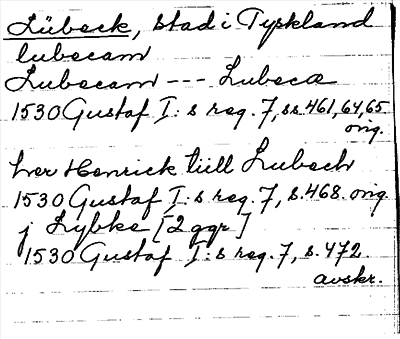 Lübeck, stad i Tyskland
lubecam
Lubecam --- Lubeca
1530 Gustaf I:s reg. 7, ss. 461, 64, 65
orig.
her Henrick till Lubech
1530 Gustaf I:s reg. 7, s. 468. orig.
j Lybke [2 ggr]
1530 Gustaf I:s reg. 7, s. 472.
avskr.